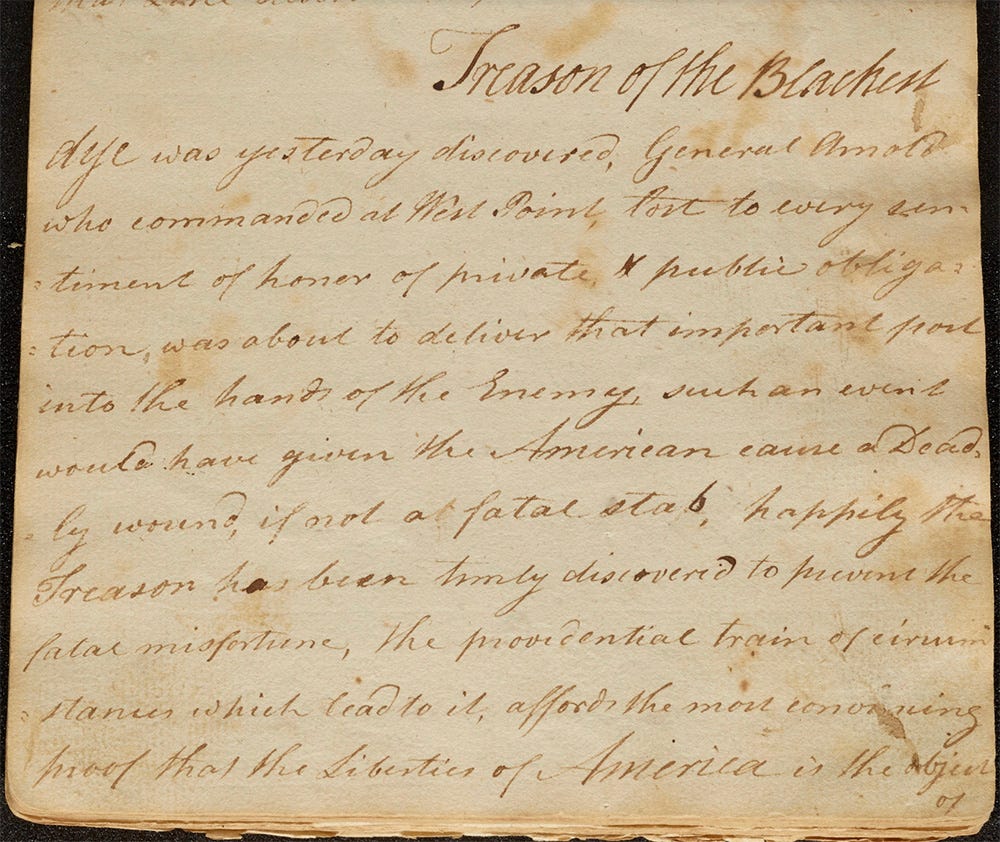 Treason of the Blackest
dye was yesterday discovered, General Arnold
who commanded at West Point, lost to every sen-
=timent of honor of private, & public obliga=
=tion, was about to deliver that important post
into the hands of the Enemy, such an event
would have given the American cause a Dead=
=ly wound, if not a fatal stab, happily the
Treason has been timly discovered to prevent the
fatal misfortune, the providential train of circum
stances which lead to it, affords the most convincing
proof that the Liberties of America is the object
of